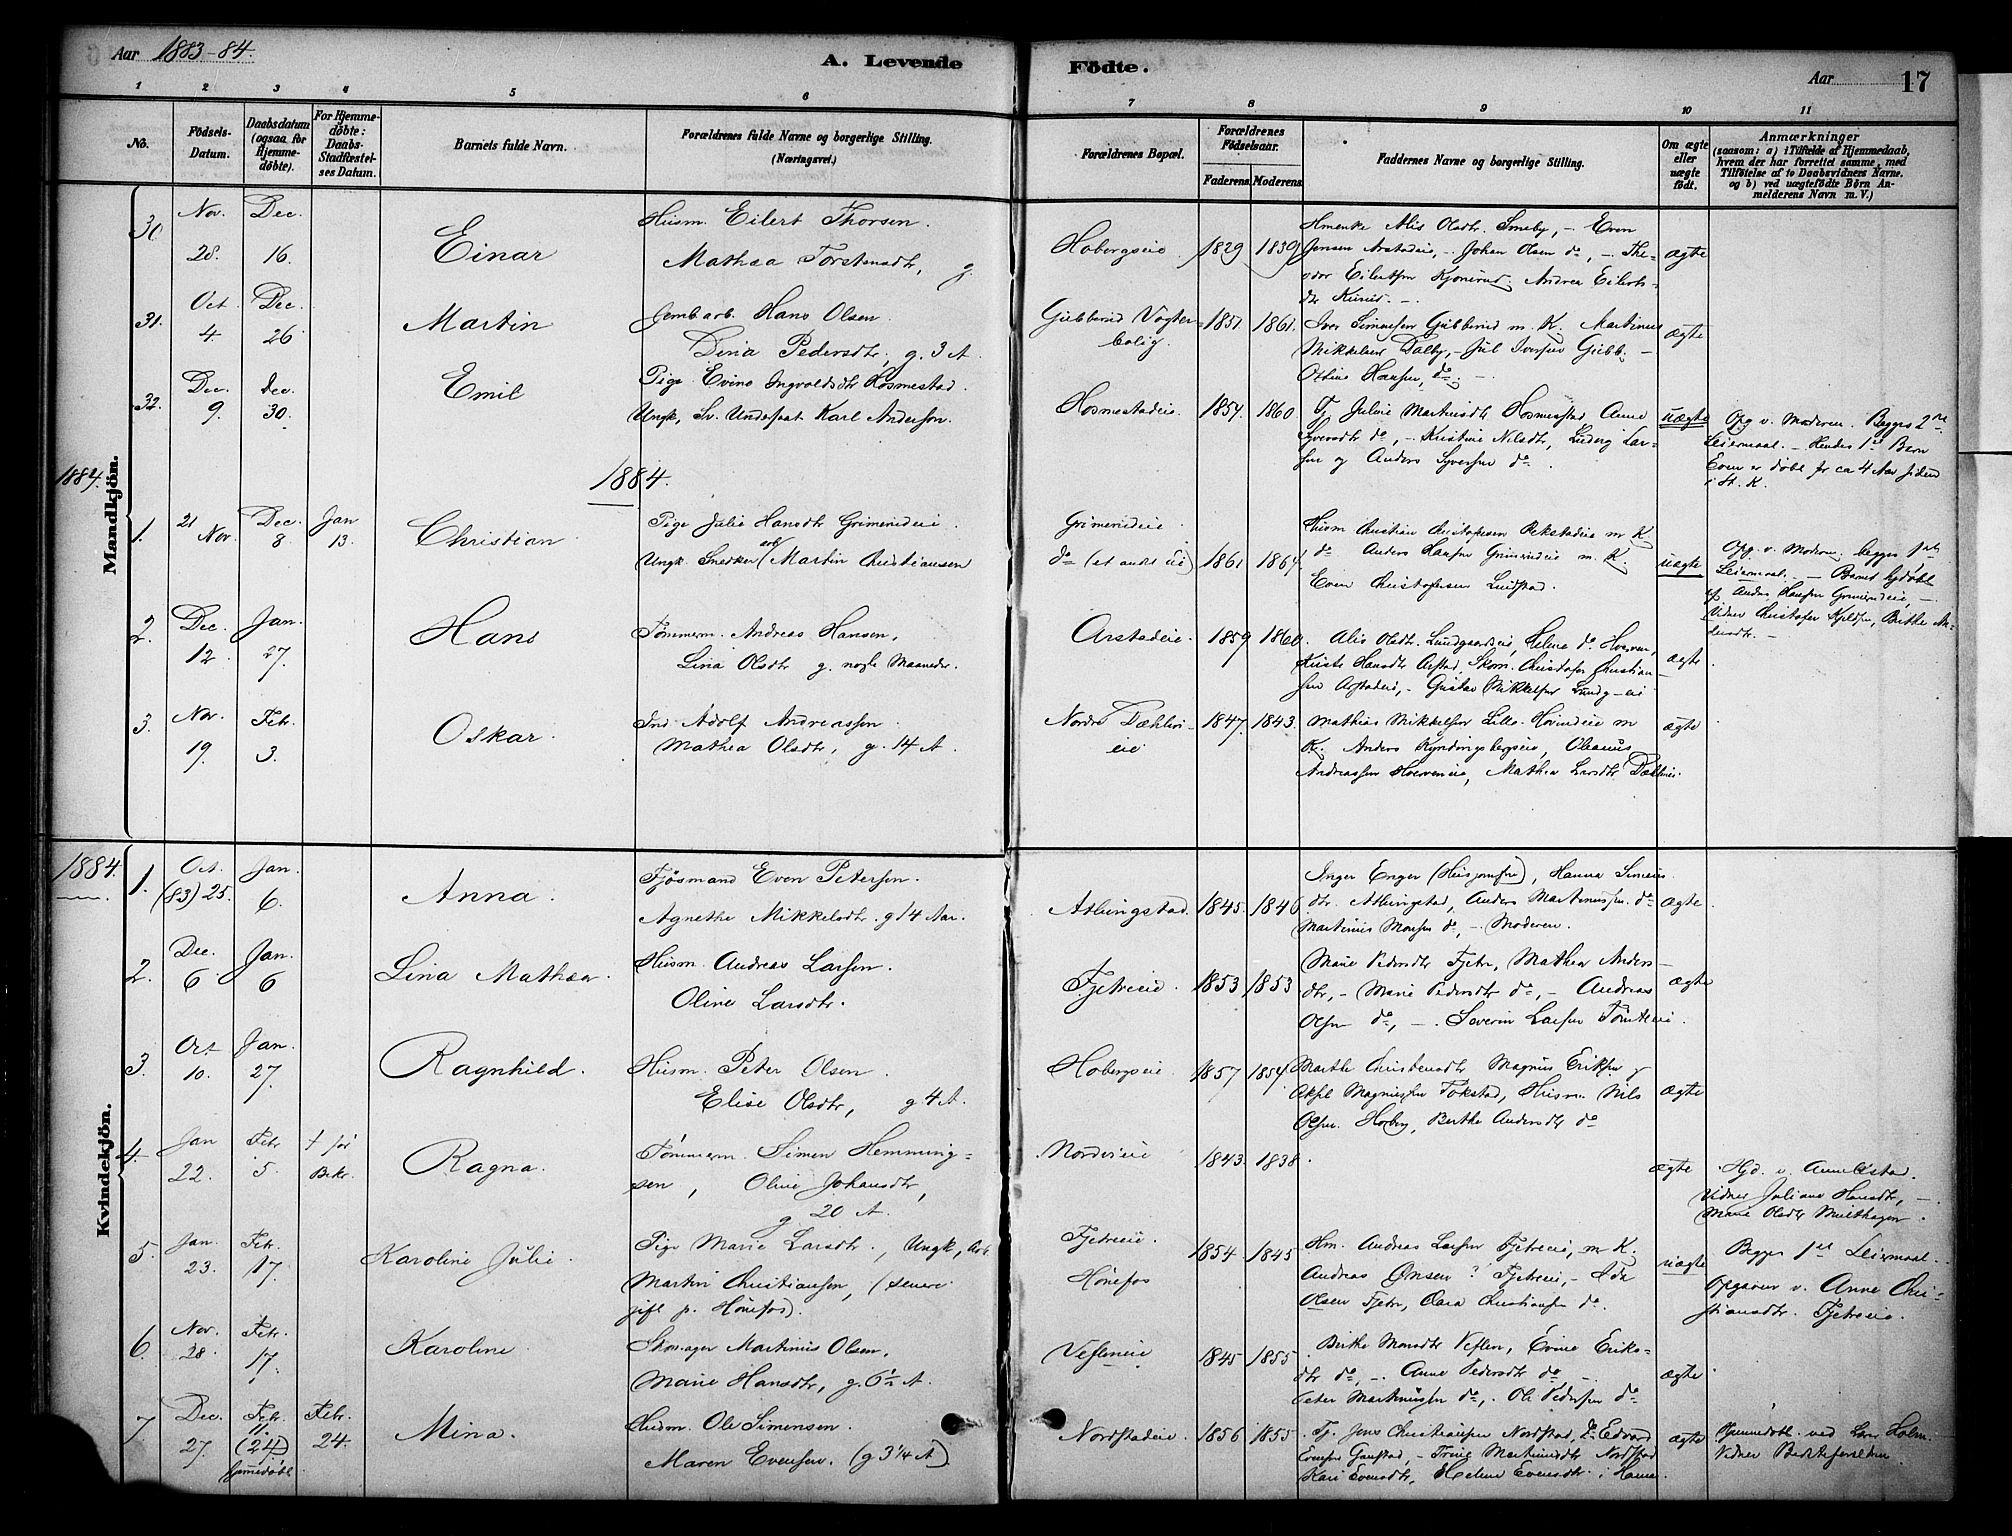 Aar 1883-84.
A. Levende
Födte.
Aar
17
1 2 3 4 5 6 7 8 9 10 11
No.
Födsels-Datum.
Daabsdatum (ogsaa for Hjemme-döbte).
For Hjemme-döbte: Daabs-Stadfæstel-ses Datum.
Barnets fulde Navn.
Forældrenes fulde Navne og borgerlige Stilling.
(Næringsvei.)
Forældrenes Bopæl.
Forældrenes Födselsaar.
Faderens Moderens
Faddernes Navne og borgerlige Stilling.
Om ægte eller uægte födt.
Anmærkninger
(saasom: a) i Tilfælde af Hjemmedaab, hvem der har forrettet samme, med Tilföielse af to Daabsvidners Navne, og b) ved uægtefödte Börn Anmelderens Navn m. V.)
Mandkjön.
30. Nov. 28. Dec. 16. Einar
Husm. Eilert Thorsen
Mathea Torstensdtr, g.
Hobergseie 1829 1839
Olsdtr. Smeby, – Even
Jensen Arstadeie, – Johan Olsen do, – The-
odor Eilertsen Andrea Eilerts-
dtr
ægte
31. Oct. 4 Dec. 26 Martin
Jernb.arb. Hans Olsen.
Dina Pedersdtr. g. 3 A.
Gubberud Vogter-
bolig. 1851 1861.
Iver Simensen Gubberud m. K. Martinus
Mikkelsen Dalby, – Jul Iversen Gubb. –
Hansen, do. –
ægte
32. Dec. 9. Dec. 30. Emil
Pige Evine Ingvoldsdtr Hosmestad.
Ungk, Sv. Karl Andersen.
Hosmestadeie. 1854. 1860
Tj. Julie Martinsdtr Hosmestad Anne
Syversdtr do, – Kristine Nilsdtr, Ludvig Lar-
sen og Anders Syversen do.
uægte
Opg v. Moderen. Begges 2det
Leiermaal. – Hendes 1ste Barn
Even er døbt for ca 4 Aar siden
i St. K.
1884.
1884.
1. 21 Nov. Dec. 8. Jan 13. Christian
Pige Julie Hansdtr Grimerudeie.
Ungk. Snedker arb Martin Christiansen
Grimerudeie
do (et andet eie) 1861 1864.
Husm Christian Christophersen m K.
do Anders Hansen Grimerudeie m. K.
Even Christophersen Lundstad.
uægte
Opg. v. Moderen. begges 1ste
Leiermaal. – Barnet hjdøbt
af Anders Hansen Grimerudeie, –
Vidner Christofer Berthe An-
dersdtr. –
2. Dec. 12. Jan. 27. Hans
Tømmerm. Andreas Hansen,
Lina Olsdtr g. nogle Maaneder.
Arstadeie. 1859 1860.
Olsdtr. Lundgaardseie, Helene do
Hansdtr Arstad, Skom. Christofer Christian-
sen Arstadeie, – Gustav Mikkelsen Lundg-eie
ægte
3. Nov. 19. Febr. 3. Oskar.
Ind. Adolf Andreassen.
Mathea Olsdtr, g. 14 A.
Nordre Dæhlin-
eie 1847. 1843.
Mathias Mikkelsen Lille-Hovindeie m
K. Anders Oleanus
Andreassen Mathea Larsdtr
ægte
Kvindekjön.
1884.
1. Oct. (83) 25. Jan. 6. Anna.
Fjøsmand Even Petersen.
Agnethe Mikkelsdtr. g 14 Aar.
Atlungstad 1845. 1846
Inger Enger (Husjomfru), Hanna Simens-
dtr. Atlungstad, Anders Martinussen do
Martinius do, – Moderen.
ægte
2. Dec. 6 Jan. 6 Lina Mathea.
Husm. Andreas Larsen.
Oline Larsdtr.
Fjetreeie. 1853 1853
Marie Pedersdtr Fjetre, Mathea Anders-
dtr, – Marie Pedersdtr do, – Andreas
Olsen do, – Severin Larsen
ægte
3. Oct. 10. Jan. 27. Ragnhild.
Husm. Peter Olsen.
Elise Olsdtr, g 4 A.
Hobergseie. 1857 1854
Marthe Christensdtr Magnus Eriksen og
Magnussen Tokstad, Husm. Nils
Olsen Hoberg, Berthe Andersdtr do
ægte
4. Jan 22. Febr 5. † før Bekr. Ragna.
Tømmerm. Simen Hemming-
sen, Oline Johansdtr,
g 20 A.
1843. 1838.
ægte
Hjd. v.
Vidner Juliane Hansdtr, –
Marie Olsdtr
5. Jan. 23. Febr. 17. Karoline Julie.
Pige Marie Larsdtr., Ungk, Arb
Martin Christiansen, (senere
gift p. Hønefos).
Fjetreeie.
Hønefos 1854. 1845
Hm. Andreas Larsen Fjetreeie, m K.
Andreas Onsen? Fjetreeie, – Ida
Olsen Fjetre, Clara Christiansen do.
uægte
Begges 1ste Leiermaal.
Opgaven v. Anne Chri-
stiansdtr. Fjetreeie.
6. Nov. 28 Febr. 17. Karoline.
Skomager Martinus Olsen,
Marie Hansdtr, g. 6½ A.
1845 1855.
Berthe Evine Eriks-
dtr do, – Anne Pedersdtr do –
Peter Martinussen do, Ole Pedersen do
ægte
7. Dec. 27. Febr. 11. (24) Hjemmedøbt Febr. 24. Mina.
Husm. Ole Simensen.
Maren Evensen. (g 3¼ A)
Nordstadeie. 1856 1855.
Tj. Jens Christiansen Nordstad, do Edvard
Evensen – Trine Martinusdtr Nordstad
Kari Evensdtr, Helene Evensdtr.
ægte
Hjemmedøbt ved Lars Holm.
Vidner Bedsteforældrene.